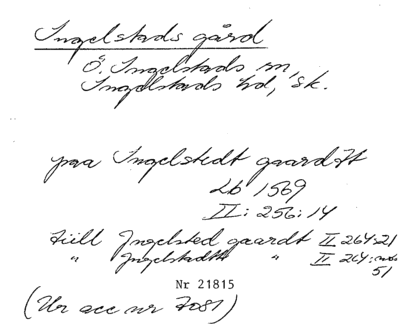 Ingelstads gård
Ö. Ingelstads sn,
Ingelstads hd, Sk.
paa Ingelstedt gaardtt
Lb 1569
II: 256: 14
till Ingelsted gaardt II 264:21
" Ingelstadth " II 264:
51
Nr 21815
(Ur acc nr 7081)